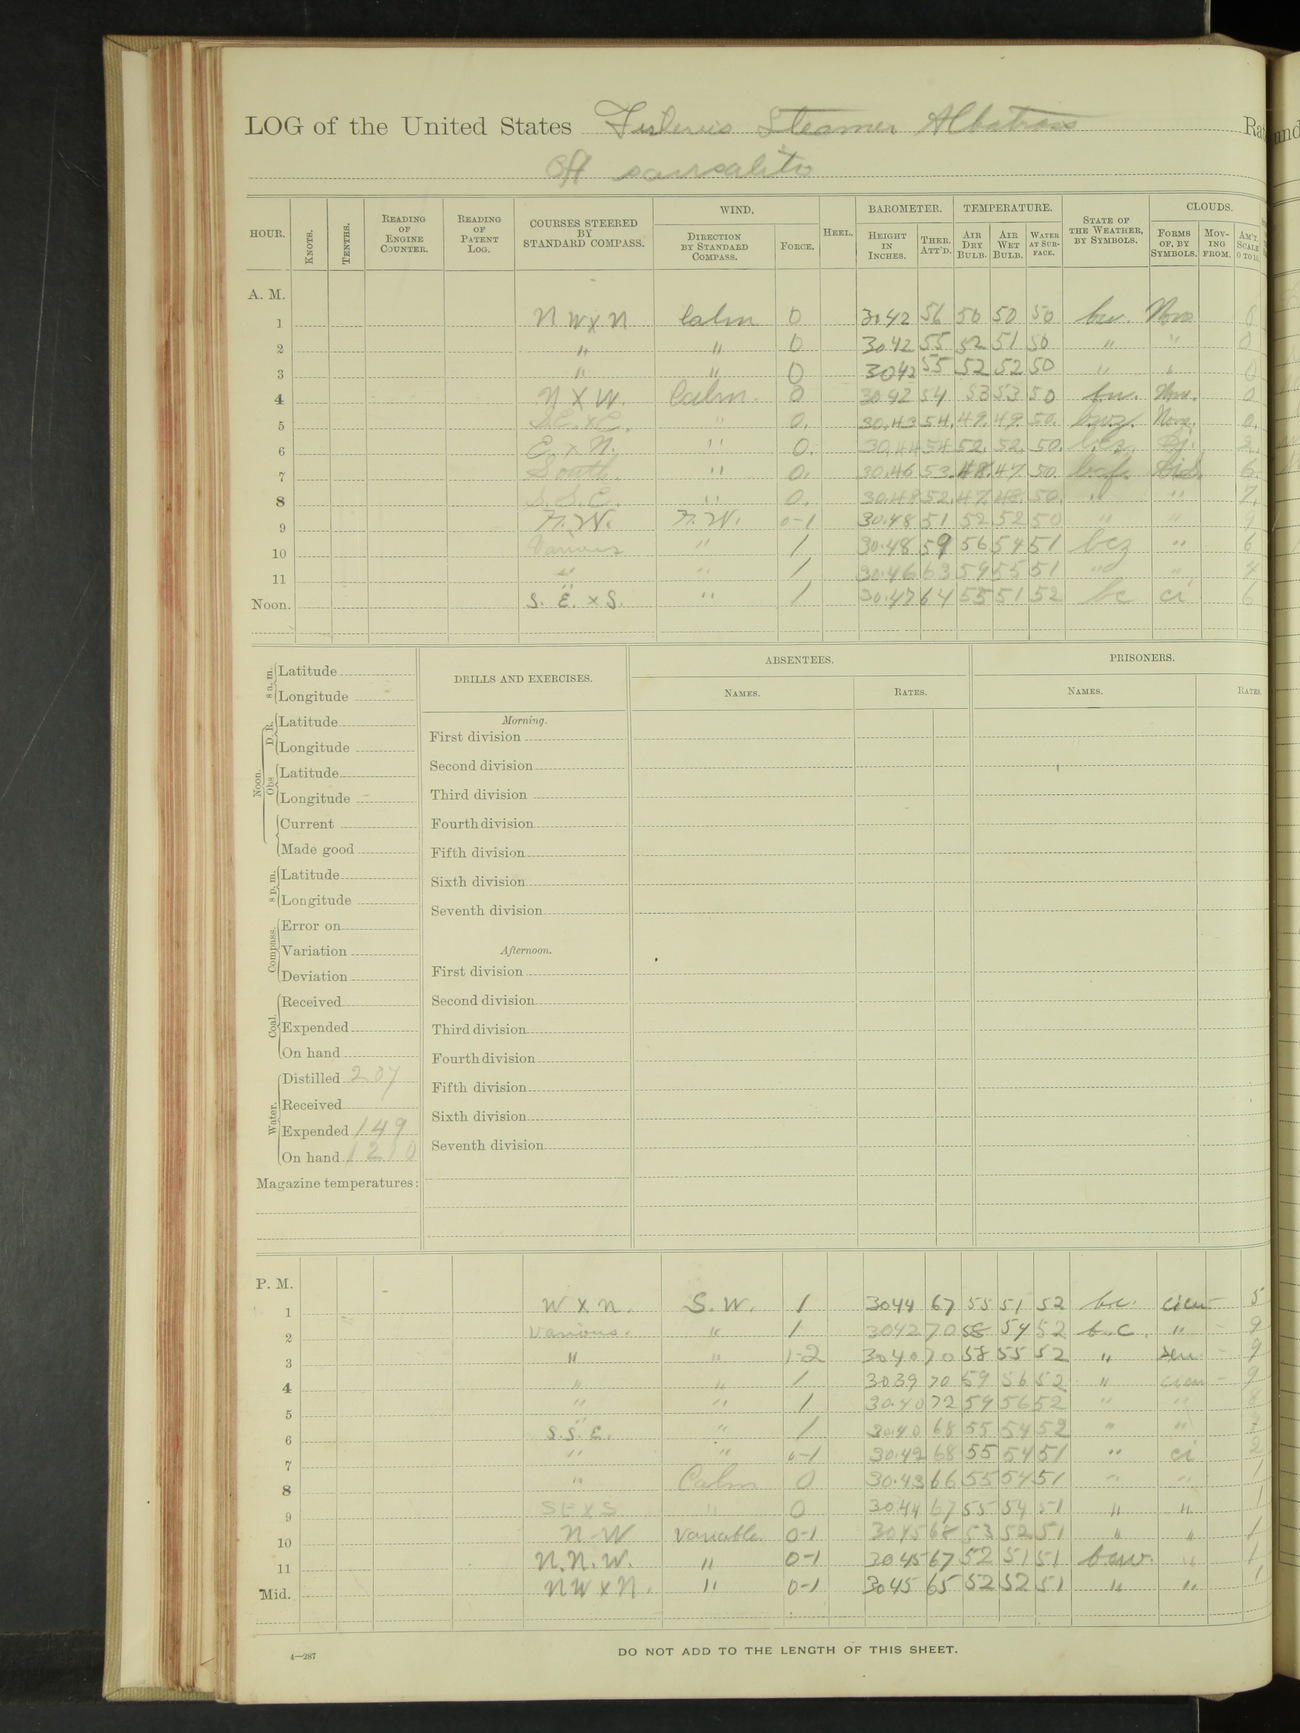 LOG of the United States Fisheries Steamer Albatross Ra
Off Sausalito
HOUR. KNOTS. TENTHS. READING OF ENGINE COUNTER. READING OF PATENT LOG. COURSES STEERED BY STANDARD COMPASS. WIND. DIRECTION BY STANDARD COMPASS. FORCE. HEEL. BAROMETER. HEIGHT IN INCHES. THER. ATT'D. TEMPERATURE. AIR DRY BULB. AIR WET BULB. WATER AT SURFACE. STATE OF THE WEATHER, BY SYMBOLS. CLOUDS. FORMS OF, BY SYMBOLS. MOVING FROM. AM'T. SCALE 0 TO 10.
A. M.
1 NW x N Calm 0 30.42 56 50 50 50 bw. None 0
2 " " 0 30.42 55 52 51 50 " " 0
3 " " 0 30.42 55 52 52 50 " " 0
4 N x W. Calm. 0 30.42 54 53 53 50 bw. None. 0
5 S.E. x E. " 0. 30.43 54. 49. 49. 50. None. 0.
6 E. x N. " 0. 30.44 54 52. 52. 50. 2.
7 South. " 0. 30.46 53. 48. 47. 50. bcf. 6.
8 S.S.E. " 0. 30.48 52. 47. 48. 50. " " 7.
9 N.W. N.W. 0-1 30.48 51 52 52 50 " " 9
10 Various " 1 30.48 59 56 54 51 bcz " 6
11 " " 1 30.46 63 59 55 51 " " 4
Noon. S. E. x S. " 1 30.47 64 55 51 52 bc ci 6
8 a. m. Latitude
Longitude
Noon. D. R. Latitude
Longitude
Obs Latitude
Longitude
Current
Made good
8 p. m. Latitude
Longitude
Compass. Error on
Variation
Deviation
Coal. Received
Expended
On hand
Water. Distilled 207
Received
Expended 149
On hand 1210
Magazine temperatures:
DRILLS AND EXERCISES.
Morning.
First division
Second division
Third division
Fourth division
Fifth division
Sixth division
Seventh division
Afternoon.
First division
Second division
Third division
Fourth division
Fifth division
Sixth division
Seventh division
ABSENTEES.
NAMES. RATES.
PRISONERS.
NAMES. RATES.
P. M.
1 W x N. S. W. 1 30.44 67 55 51 52 b.c. cicu - 5
2 Various. " 1 30.42 70 58 54 52 b.c. " - 9
3 " " 1-2 30.40 70 58 55 52 " - 9
4 " " 1 30.39 70 59 56 52 " cicu - 9
5 " " 1 30.40 72 59 56 52 " " 8
6 S.S.E. " 1 30.40 68 55 54 52 " "
7 " " 0-1 30.42 68 55 54 51 " ci 2
8 " Calm 0 30.43 66 55 54 51 " " 1
9 SE x S " 0 30.44 67 55 54 51 " " 1
10 N-W Variable 0-1 30.45 68 53 52 51 " " 1
11 N.N.W. " 0-1 30.45 67 52 51 51 bcw. " 1
Mid. NW x N. " 0-1 30.45 65 52 52 51 " " 1
4—287
DO NOT ADD TO THE LENGTH OF THIS SHEET.